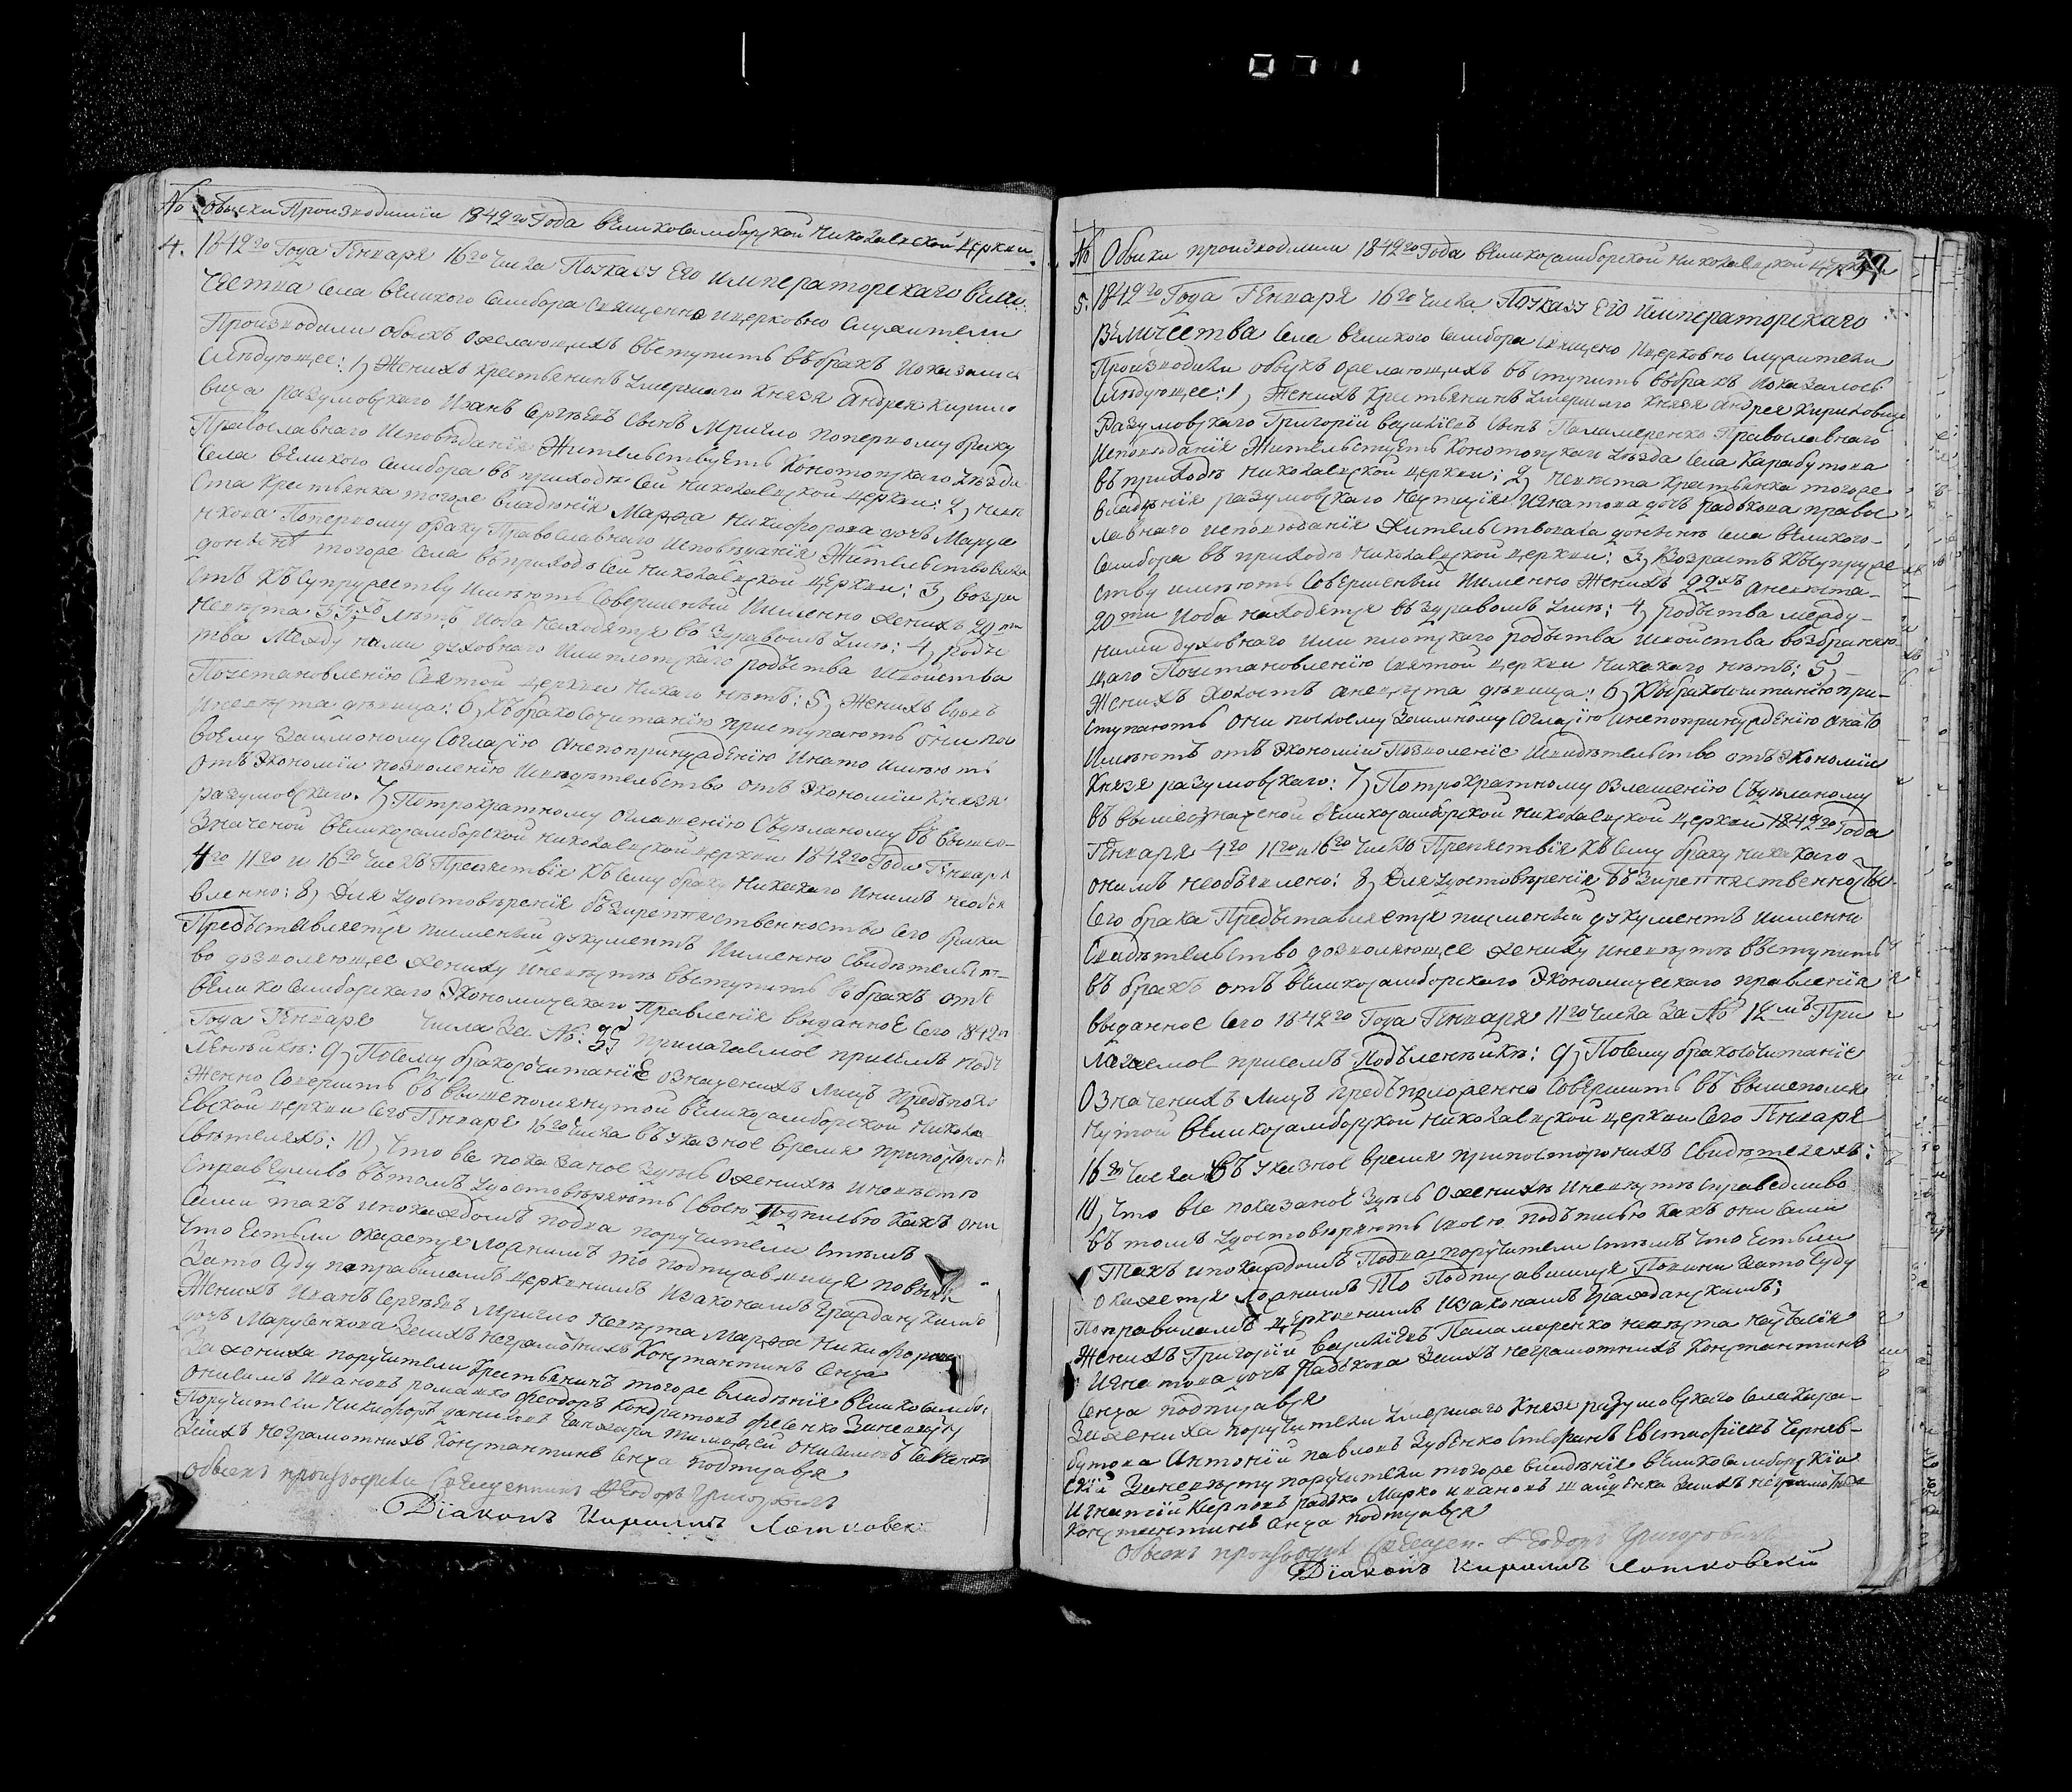 № Обыски Произходимiи 1842го Года великосамборской Николаевской церкви.
4. 1842го Года Генваря 16го Числа По указу Его Императорскаго вели
чества села великого Самбора Священно ицерковно служители
Производили обыскъ Ожелающихъ въступить въбракъ Иоказалось
слѣдующее: 1) Женихъ крестьянинъ умершаго Князя Андрея Кирило
вича разумовскаго Иванъ Сергѣевъ Сынъ Мригло поперкому браку
Православнаго Исповѣданiя Жительствуетъ Конотопскаго уѣзда
Села великого Самбора въ приходѣ Сей Николаевской церкви: 2) неве
ста крестьянка тогоже владѣнiя Марѳа Никифорова дочь Марусе
нкова Поперкому браку Православнаго Исповѣданiя Жительствовала
донынѣ тогоже Села въприходѣ Сей Николаевской церкви: 3) возра
стъ къ Супружеству Имѣютъ Совершеный Именно женихъ 20ти
невѣста лѣтъ Иоба находятся въ здравомъ умѣ: 4) родъс
тва Между нами духовнаго Или плотскаго родъства Исвойства
Поустановленiю Святой церкви Никаго нѣтъ: 5) Женихъ вдовъ
Иневѣста дѣвица: 6) къ бракосочитанiю приступаютъ они пос
воему взаимоному Согласiю Анепопринужденiю Инато имѣютъ
отъ Экономiи позволенiю Исвидѣтельство отъ Экономiи Князя
разумовскаго. 7) Потрократному оглашенiю Съдѣланому въ вышео-
значеной великосамборской николаевской церкви 1842го Года Генваря
4го 11го и 16го Числъ Препятствiя къ сему браку никакаго Инимъ необъя
вленно: 8) Для удостовѣренiя бѣзпрепятственность Сего брака
Предъставляется писменый документъ Именно свидѣтельст-
во дозволяющее жениху Иневѣстѣ въступить въ бракъ отъ
великосамборскаго Экономическаго Правленiя выданное Сего 1842го
Года Генваря Числа За №: 35 прилагаемое присемъ подъ
линѣйкѣ: 9) Посему бракосочитанiе означенихъ лицъ предъполо
женно Совершить въ вышепомянутой великосамборской Никола
евской церкви Сего Генваря 16го Числа въ указное время припостороннихъ
Свѣтеляхъ: 10) Что все показаное здѣсь Оженихѣ иневѣстѣ
Справедливо вътомъ удостовѣряютъ Своею Подписью какъ они
Сами такъ ипокаждомъ подва поручители Стѣмъ
Что Естьли окажется Ложнимъ то подписавшиися повинни
Зато Суду поправиламъ церковнимъ Изаконамъ Гражданскимъ
Женихъ Иванъ Сергѣевъ Мригло Невѣста Марѳа Никифорова
дочь Марусенкова Заихъ неграмотнихъ Константинъ Сенча
За жениха поручители крестьянинъ тогоже владѣнiя великосамбо.
Онисимъ Ивановъ романко Феодоръ Кондратовъ Фесенко Заневѣсту
Поручители Никифоръ даниловъ Ганжара Тимофей Онисимовъ Савенко
Заихъ Неграмотнихъ Константинъ Сенча подписався
обыскъ производили Священникъ Феодоръ Григоровичъ
Дiаконъ Кириллъ Лотиковскiй
№ Обыски произходимии 1842го Года великосамборской Николаевской церкви
5. 1842го Года Генваря 16го Числа По указу Его Императорскаго
величества села великого Самбора Священо Ицерковно служители
Производили обыскъ ожелающихъ въступить въбракъ Иоказалось
слѣдующее: 1) Женихъ Крестьянинъ умершаго Князя Андрея Кириловича
Разумовскаго Григорiй василiевъ Сынъ Паламаренко Православнаго
Исповѣданiя Жительствуетъ Конотопскаго уѣзда Села Карабутова
въ приходѣ Николаевской церкви: 2) Невѣста Крестьянка тогоже
владѣнiя разумовскаго Наталiя Игнатова дочь радькова правос
лавнаго исповѣданiя жительствовала донынѣ села великого-
Самбора въ приходѣ Николаевской церкви: 3) Возрастъ къ супруже
ству имѣютъ Совершеный Именно Женихъ 22хъ Аневѣста-
20ти Иоба находятся въ здравомъ умѣ: 4) родъства между-
ними духовнаго или плотскаго родъства исвойства возбраняю
щаго Поустановленiю Святой церкви Никакаго нѣтъ: 5)-
Женихъ холостъ аневѣста дѣвица: 6) къ бракосочитанiю при-
ступаютъ они посвоему взаимному Согласiю Инепопринужденiю Анато
Имѣютъ отъ Экономiи Позволенiе Исвидѣтельство отъ Экономiи
Князя разумовскаго: 7) Потрократному оглашенiю Съдѣланому
въ вышеозначеной великосамборской Николаевской церкви 1842го Года
Генваря 4го 11го и 16го Числъ Препятствiя къ сему браку никакаго
онимъ необъявлено: 8) Для удостовѣренiя бѣзпрепятственность-
Сего брака Предъставляется писменый дукументъ именно
Свидѣтельство дозволяющее жениху Иневѣстѣ въступить
въ бракъ отъ великосамборскаго Экономическаго правленiя
выданное Сего 1842го Года Генваря 11го Числа За № 12мъ При
лагаемое присемъ Подълинѣйкѣ: 9) Посему бракосочитанiе
Означенихъ лицъ предъположенно Совершить въ вышепомя
нутой великосамборской Николаевской церкви Сего Генваря
16го Числа въ указное время припостороннихъ Свидѣтеляхъ:
10) Что все показаное здѣсь Оженихѣ Иневѣстѣ справедливо
въ томъ удостовѣряютъ своею подъписью какъ они сами
Такъ ипокаждомъ Подва поручители Стѣмъ Что Естьли
окажется Ложнимъ То Подписавшиися Повини Зато Суду
Поправиламъ церковнимъ Изаконамъ Гражданскимъ;
Женихъ Григорiй василiевъ Паламаренко невѣста Наталiя
Игнатова дочь Радькова Заихъ неграмотнихъ Константинъ
Сенча подписався
За жениха поручители умершаго Князя разумовскаго села Кара-
бутова Антонiй павловъ Зубенко Стефанъ Евстафiевъ Черняв-
скiй Заневѣсту поручители тогоже владѣнiя великосамборскiи
Игнатiй Карповъ радько Марко Ивановъ Заихъ неграмотнихъ
Константинъ Сенча подписався
Обыскъ производилъ Священ. Феодоръ Григоровичъ
Дiаконъ Кириллъ Лотиковскiй